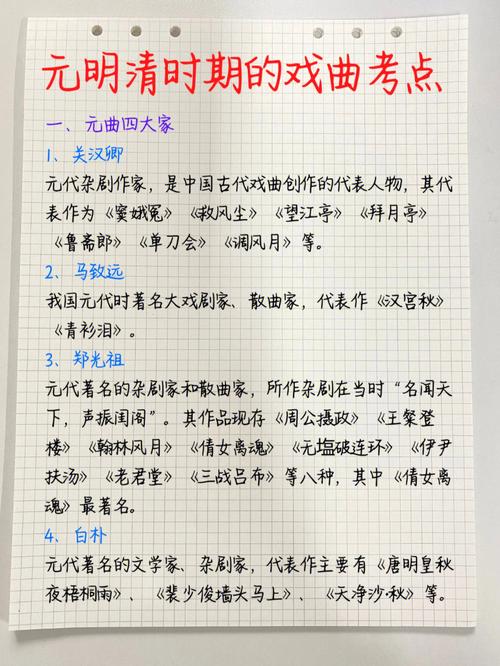 元明清时期的戏曲考点
一、元曲四大家
1、关汉卿
元代杂剧作家，是中国古代戏曲创作的代表人物，其代
表作为《窦娥冤》《救风尘》《望江亭》《拜月亭》
《鲁斋郎》《单刀会》《调风月》等。
2、马致远
我国元代时著名大戏剧家、散曲家，代表作《汉宫秋》
《青衫泪》。
3、郑光祖
元代著名的杂剧家和散曲家，所作杂剧在当时“名闻天
下，声振闺阁”。其作品现存《周公摄政》《王粲登
楼》《翰林风月》《倩女离魂》《无塩破连环》《伊尹
扶汤》《老君堂》《三战吕布》等八种，其中《倩女离
魂》最著名。
4、白朴
元代著名的文学家、杂剧家，代表作主要有《唐明皇秋
夜梧桐雨》、《裴少俊墙头马上》、《天净沙·秋》等。